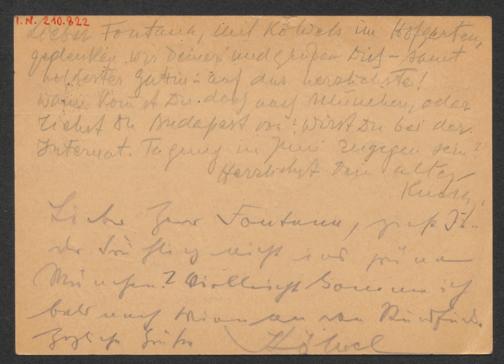 I.N. 210.822
Lieber Fontana, mit Kölwel im Hofgarten,
gedenken wir Deiner und grüßen Dich – samt
Gattin – auf das herzlichste!
Wann kommst Du doch nach München, oder
ziehst Du Budapest vor? Wirst Du bei der
Internat. Tagung im Juni zugegen sein?
Herzlichst Dein alter
Lieber Herr Fontana,
der Frühling nicht ins grüne
München? Vielleicht komme ich
bald nach Wien
Herzliche Grüße Kölwel